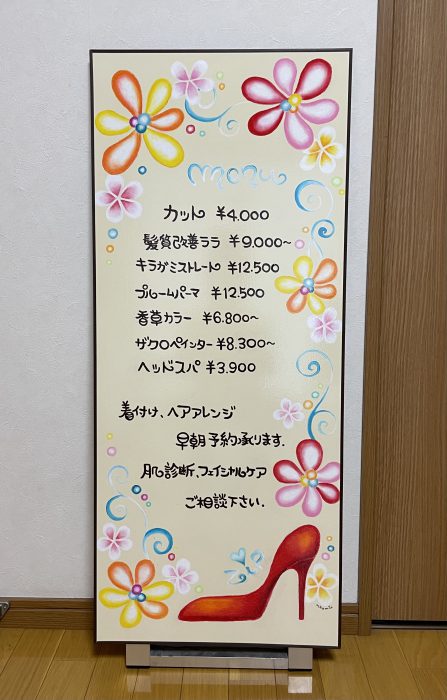 menu
カット ¥4.000
髪質改善ララ ¥9.000~
キラガミストレート ¥12.500
プルームパーマ ¥12.500
香草カラー ¥6.800~
ザクロペインター ¥8.300~
ヘッドスパ ¥3.900
着付け、ヘアアレンジ
早朝予約承ります.
肌診断、フェイシャルケア
ご相談下さい.